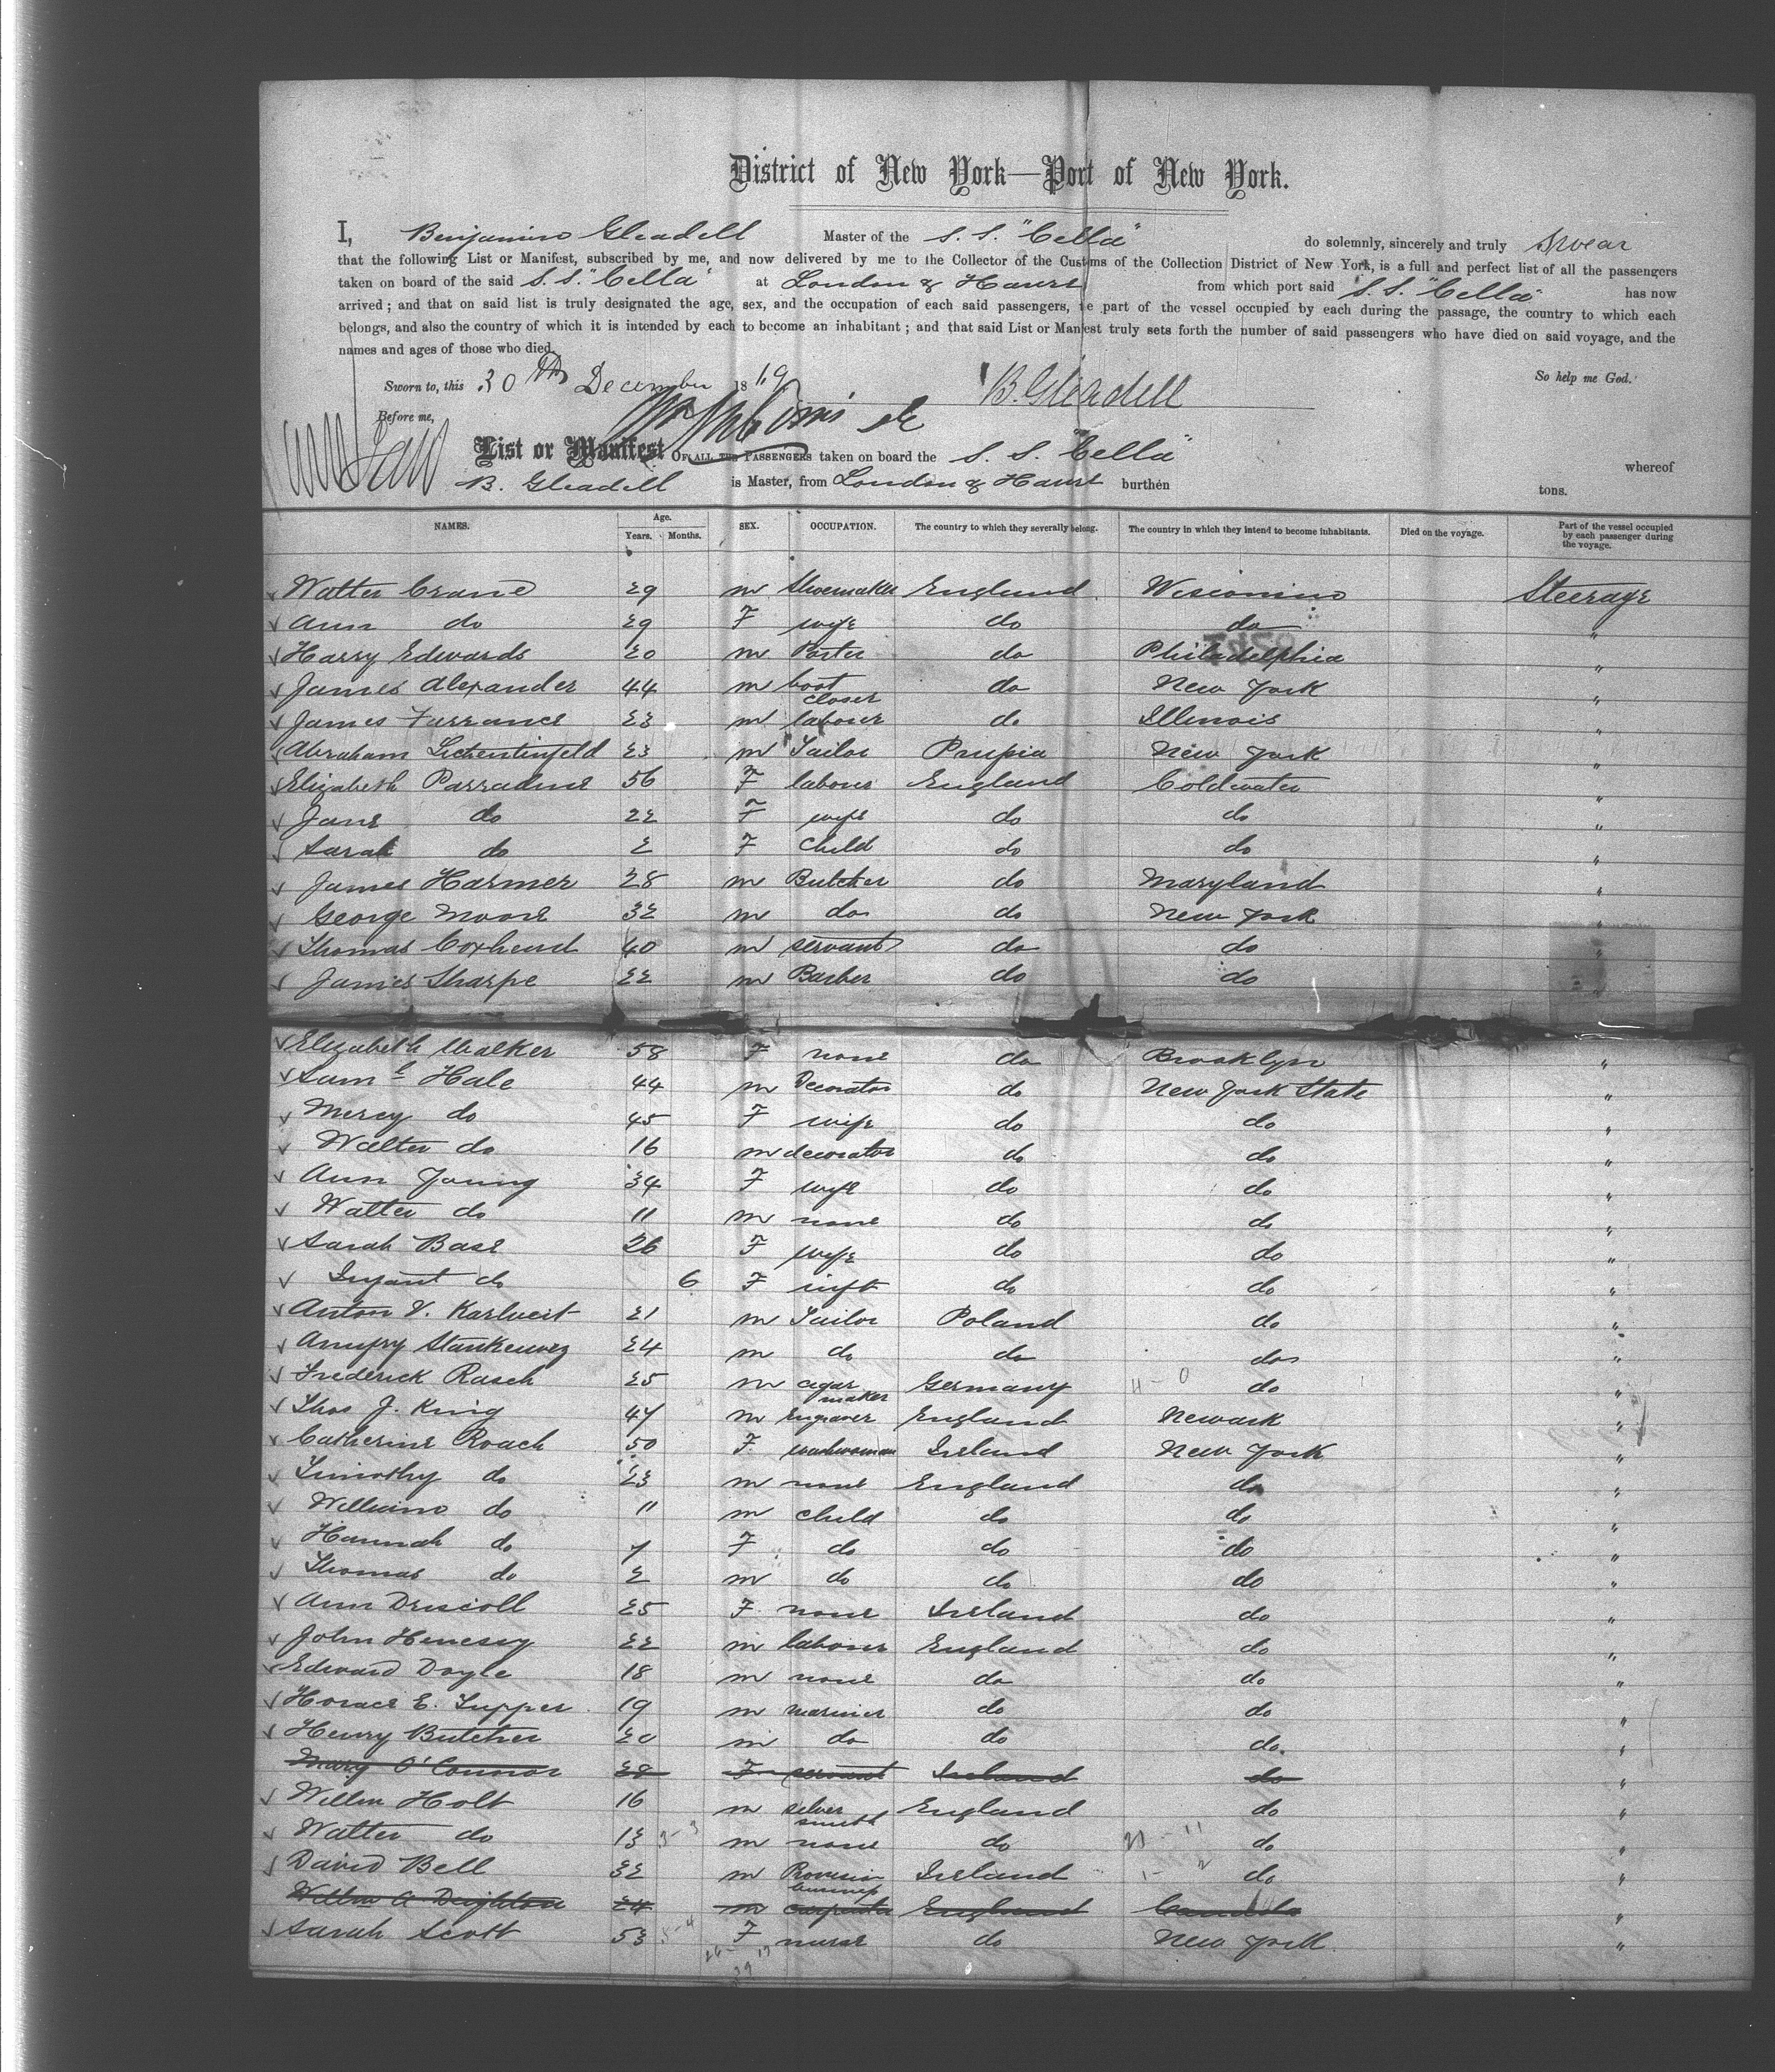 District of New York—Port of New York.
I, Benjamin Gleadell Master of the S. S. "Cella" do solemnly, sincerely and truly Swear
that the following List or Manifest, subscribed by me, and now delivered by me to the Collector of the Customs of the Collection District of New York, is a full and perfect list of all the passengers
taken on board of the said S. S. "Cella" at London & Havre from which port said S. S. "Cella" has now
arrived; and that on said list is truly designated the age, sex, and the occupation of each said passengers, the part of the vessel occupied by each during the passage, the country to which each
belongs, and also the country of which it is intended by each to become an inhabitant; and that said List or Manifest truly sets forth the number of said passengers who have died on said voyage, and the
names and ages of those who died.
Sworn to, this 30th December 1869 B. Gleadell So help me God.
Before me,
List or Manifest OF ALL THE PASSENGERS taken on board the S. S. "Cella" whereof
B. Gleadell is Master, from London & Havre burthen tons.
NAMES. Age. Years. Months. SEX. OCCUPATION. The country to which they severally belong. The country in which they intend to become inhabitants. Died on the voyage. Part of the vessel occupied by each passenger during the voyage.
Walter Crane 29 m Shoemaker England Wisconsin Steerage
Ann do 29 F wife do do "
Harry Edwards 20 m Porter do Philadelphia "
James Alexander 44 m boot closer do New York "
James Farrance 23 m labourer do Illinois "
Abraham Lichentinfeld 23 m Tailor Prussia New York "
Elizabeth Parradine 56 F labour England Coldwater "
Jane do 22 F wife do do "
Sarah do 2 F Child do do "
James Harmer 28 m Butcher do Maryland "
George Moore 32 m do do New York "
Thomas Coxhead 40 m servant do do "
James Sharpe 22 m Barber do do "
Elizabeth Walker 58 F none do Brooklyn "
Saml Hale 44 m Decorator do New York State "
Mercy do 45 F wife do do "
Walter do 16 m decorator do do "
Ann Young 34 F wife do do "
Walter do 11 m none do do "
Sarah Base 26 F wife do do "
Infant do 6 F inft do do "
Anton V. Karlveit 21 m Tailor Poland do "
Anufry Stankeuvez 24 m do do do "
Frederick Rasch 25 m cigar maker Germany do "
Thos J. King 47 m Engraver England Newark "
Catherine Roach 50 F washwoman Ireland New York "
Timothy do 23 m none England do "
William do 11 m child do do "
Hannah do 7 F do do do "
Thomas do 2 m do do do "
Ann Driscoll 25 F none Ireland do "
John Henesey 22 m labour England do "
Edward Doyle 18 m none do do "
Horace E. Tupper 19 m mariner do do "
Henry Butcher 20 m do do do "
Mary O'Connor 28 F servant Ireland do "
Willm Holt 16 m silver smith England do "
Walter do 13 m none do do "
David Bell 32 m Provision Ireland do "
Willm A Deighton 24 m carpenter England Canada "
Sarah Scott 53 F nurse do New York "